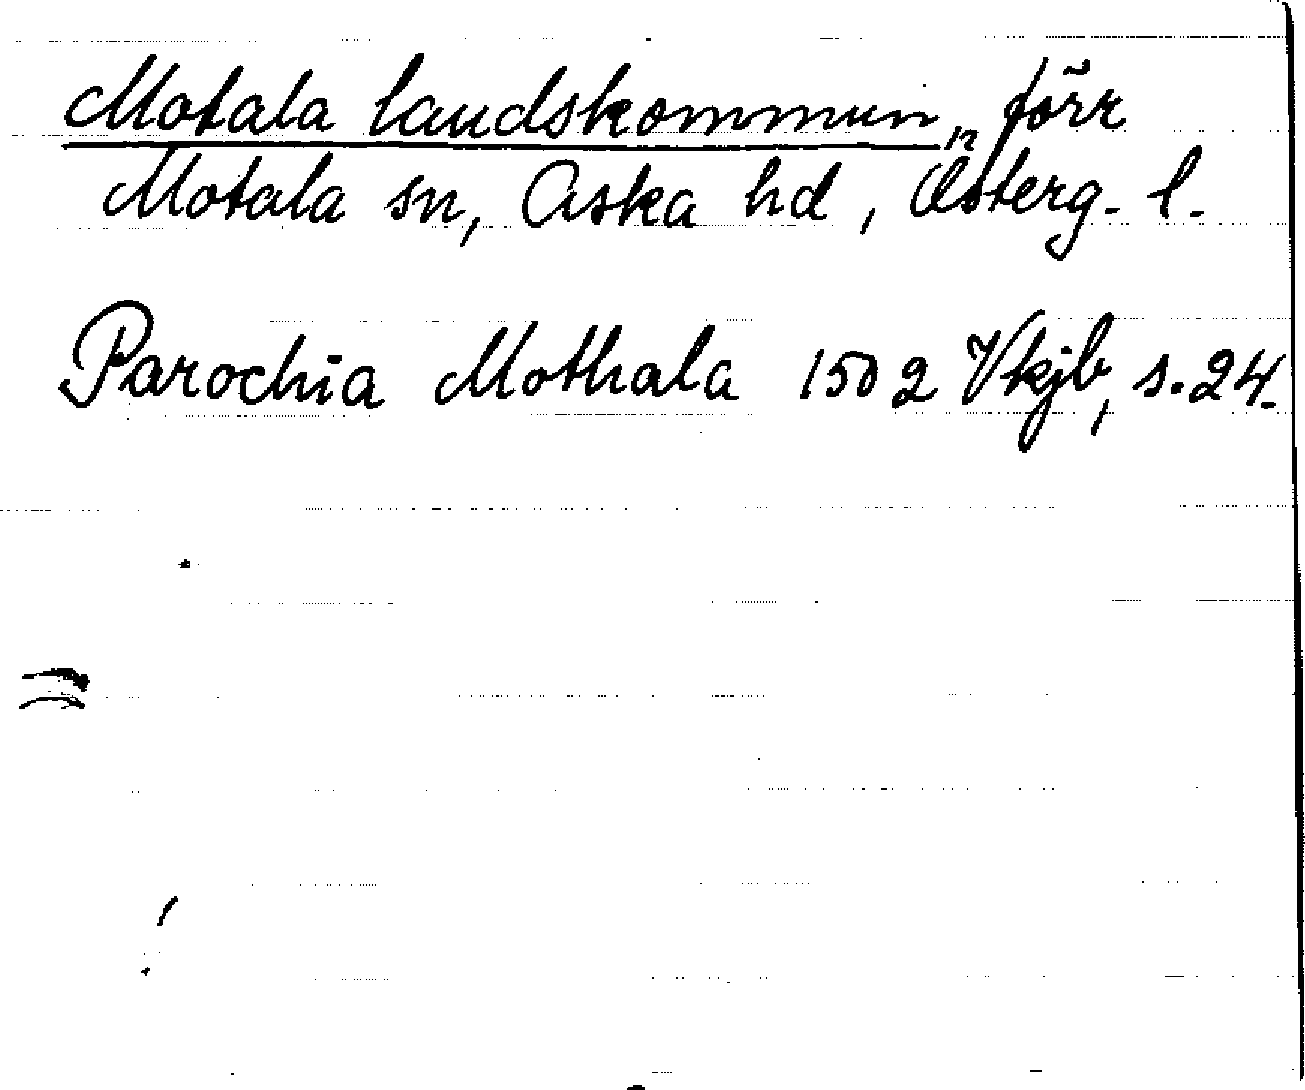 Motala landskommun, förr
Motala sn, Aska hd, Österg. l.
Parochia Mothala 1502 Vkjb, s. 24.